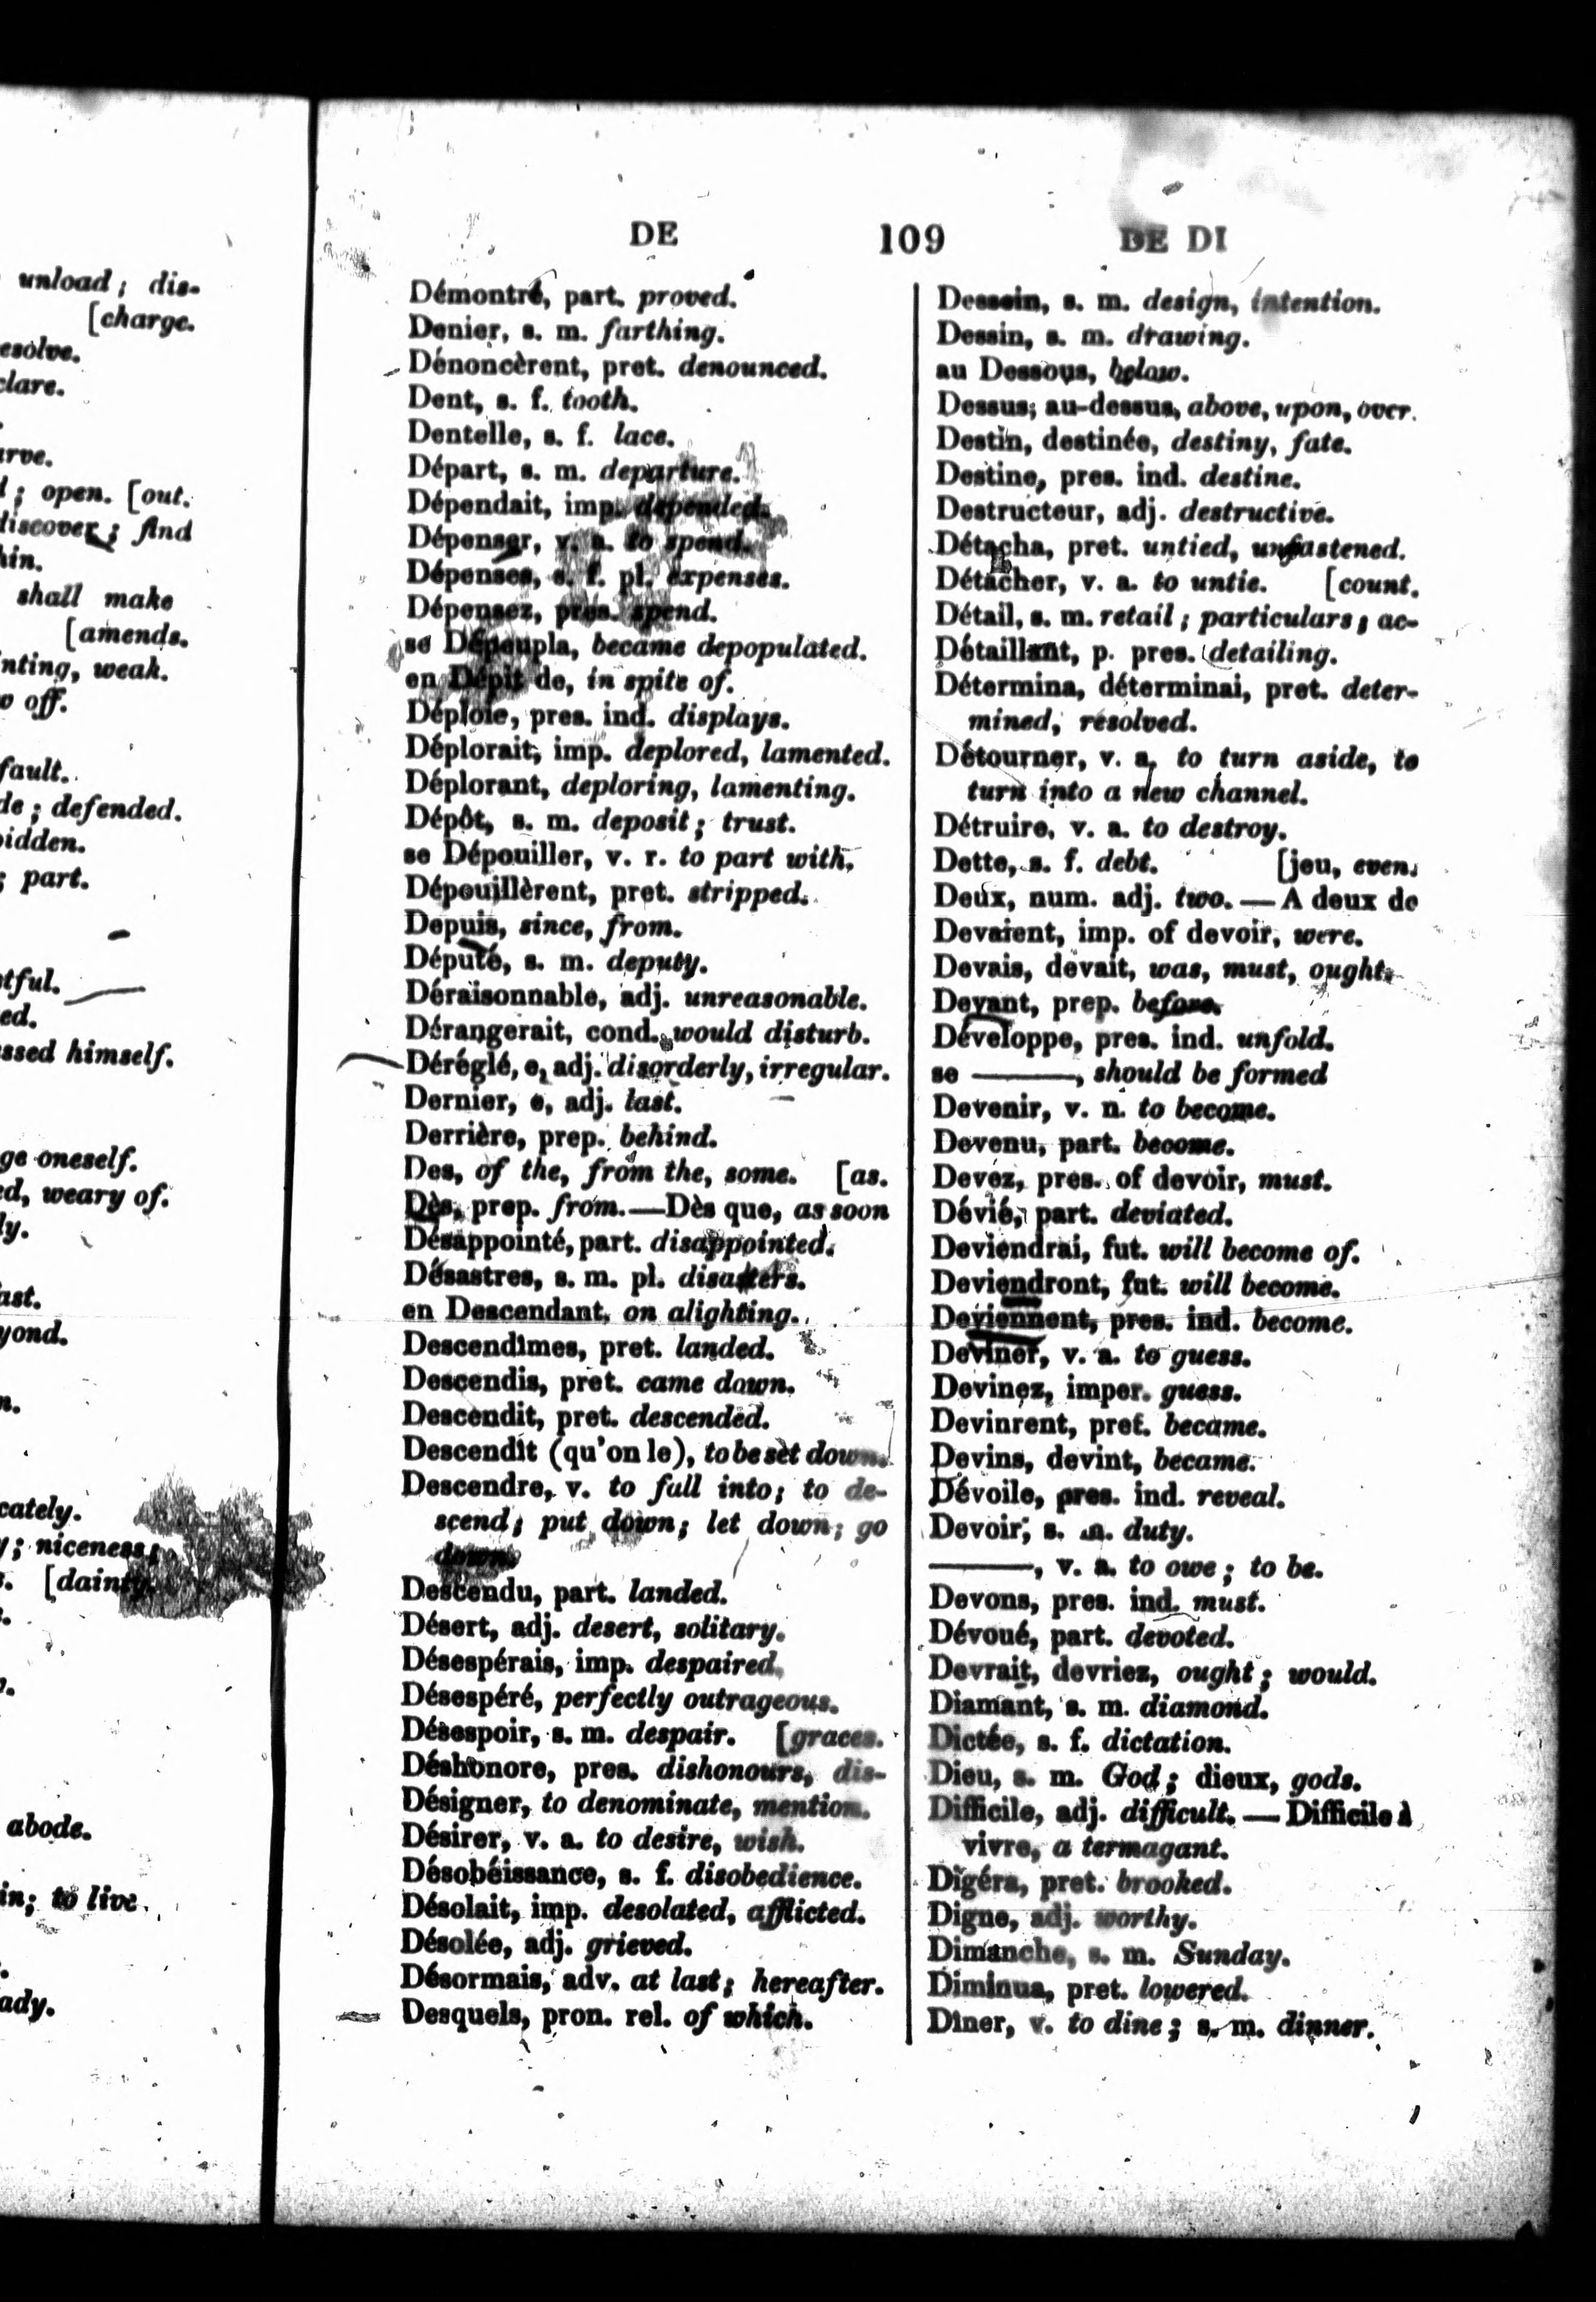 unload; dis-
[charge.
esolve.
clare.
rve.
; open. [out.
discover; find
hin.
shall make
[amends.
nting, weak.
off.
fault.
de; defended.
bidden.
; part.
tful.
ed.
ssed himself.
ge oneself.
ed, weary of.
ly.
ast.
yond.
n.
cately.
; niceness;
[dainty.
abode.
in; to live
ady.
DE 109 DE DI
Démontré, part. proved.
Denier, s. m. farthing.
Dénoncèrent, pret. denounced.
Dent, s. f. tooth.
Dentelle, s. f. lace.
Départ, s. m. departure.
Dépendait, imp. depended.
Dépenser, v. a. to spend.
Dépenses, s. f. pl. expenses.
Dépensez, pres. spend.
se Dépeupla, became depopulated.
en Dépit de, in spite of.
Déploie, pres. ind. displays.
Déplorait, imp. deplored, lamented.
Déplorant, deploring, lamenting.
Dépôt, s. m. deposit; trust.
se Dépouiller, v. r. to part with.
Dépouillèrent, pret. stripped.
Depuis, since, from.
Député, s. m. deputy.
Déraisonnable, adj. unreasonable.
Dérangerait, cond. would disturb.
Déréglé, e, adj. disorderly, irregular.
Dernier, e, adj. last.
Derrière, prep. behind.
Des, of the, from the, some. [as.
Dès, prep. from.—Dès que, as soon
Désappointé, part. disappointed.
Désastres, s. m. pl. disasters.
en Descendant, on alighting.
Descendîmes, pret. landed.
Descendis, pret. came down.
Descendit, pret. descended.
Descendît (qu'on le), to be set down.
Descendre, v. to fall into; to de-
scend; put down; let down; go
down.
Descendu, part. landed.
Désert, adj. desert, solitary.
Désespérais, imp. despaired.
Désespéré, perfectly outrageous.
Désespoir, s. m. despair. [graces.
Déshonore, pres. dishonours, dis-
Désigner, to denominate, mention.
Désirer, v. a. to desire, wish.
Désobéissance, s. f. disobedience.
Désolait, imp. desolated, afflicted.
Désolée, adj. grieved.
Désormais, adv. at last; hereafter.
Desquels, pron. rel. of which.
Dessein, s. m. design, intention.
Dessin, s. m. drawing.
au Dessous, below.
Dessus; au-dessus, above, upon, over.
Destin, destinée, destiny, fate.
Destine, pres. ind. destine.
Destructeur, adj. destructive.
Détacha, pret. untied, unfastened.
Détacher, v. a. to untie. [count.
Détail, s. m. retail; particulars; ac-
Détaillant, p. pres. detailing.
Détermina, déterminai, pret. deter-
mined, resolved.
Détourner, v. a. to turn aside, to
turn into a new channel.
Détruire, v. a. to destroy.
Dette, s. f. debt. [jeu, even.
Deux, num. adj. two. — A deux de
Devaient, imp. of devoir, were.
Devais, devait, was, must, ought.
Devant, prep. before.
Développe, pres. ind. unfold.
se ———, should be formed
Devenir, v. n. to become.
Devenu, part. become.
Devez, pres. of devoir, must.
Dévié, part. deviated.
Deviendrai, fut. will become of.
Deviendront, fut. will become.
Deviennent, pres. ind. become.
Deviner, v. a. to guess.
Devinez, imper. guess.
Devinrent, pret. became.
Devins, devint, became.
Dévoile, pres. ind. reveal.
Devoir, s. m. duty.
———, v. a. to owe; to be.
Devons, pres. ind. must.
Dévoué, part. devoted.
Devrait, devriez, ought; would.
Diamant, s. m. diamond.
Dictée, s. f. dictation.
Dieu, s. m. God; dieux, gods.
Difficile, adj. difficult. — Difficile à
vivre, a termagant.
Digéra, pret. brooked.
Digne, adj. worthy.
Dimanche, s. m. Sunday.
Diminua, pret. lowered.
Dîner, v. to dine; s. m. dinner.